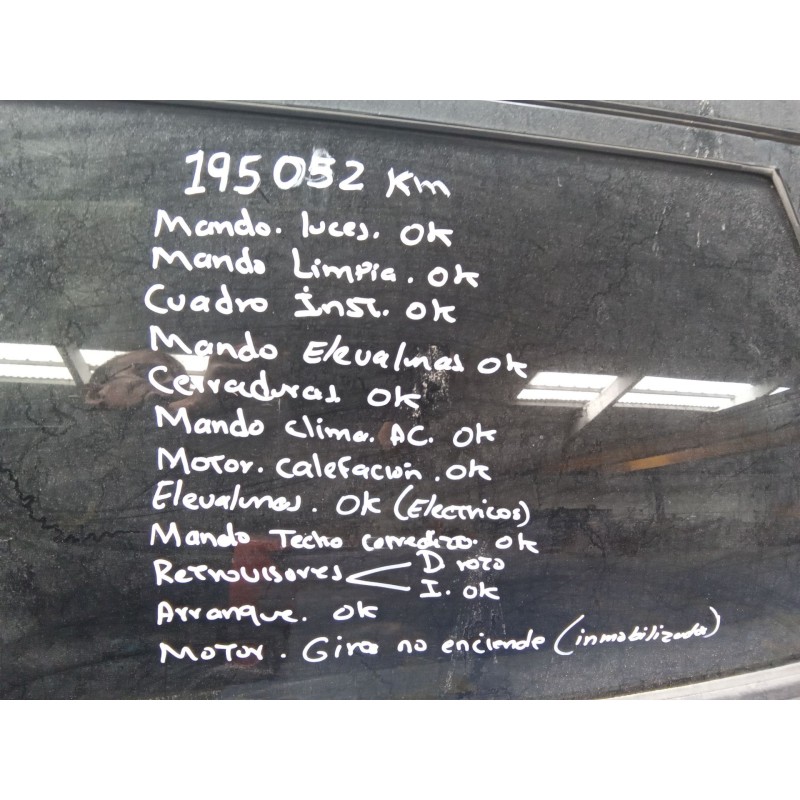 195052 Km
Mando. luces. OK
Mando Limpia. OK
Cuadro Inst. OK
Mando Elevalunas OK
Cerraduras OK
Mando clima. AC. OK
Motor. calefación. OK
Elevalunas. OK (Electricos)
Mando Techo corredizo. OK
Retrovisores D roto
I. OK
Arranque. OK
MOTOR. Gira no enciende (inmobilizado)